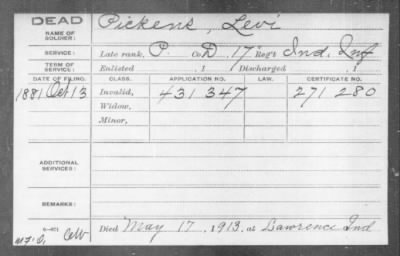 DEAD
NAME OF SOLDIER: Pickens, Levi
SERVICE: Late rank, P. Co. D, 17" Reg't Ind. Inf
TERM OF SERVICE: Enlisted , 1 Discharged , 1
DATE OF FILING. CLASS. APPLICATION NO. LAW. CERTIFICATE NO.
1881 Oct 13 Invalid, 431 347 271 280
Widow,
Minor,
ADDITIONAL SERVICES:
REMARKS:
Died May 17, 1913, at Lawrence Ind